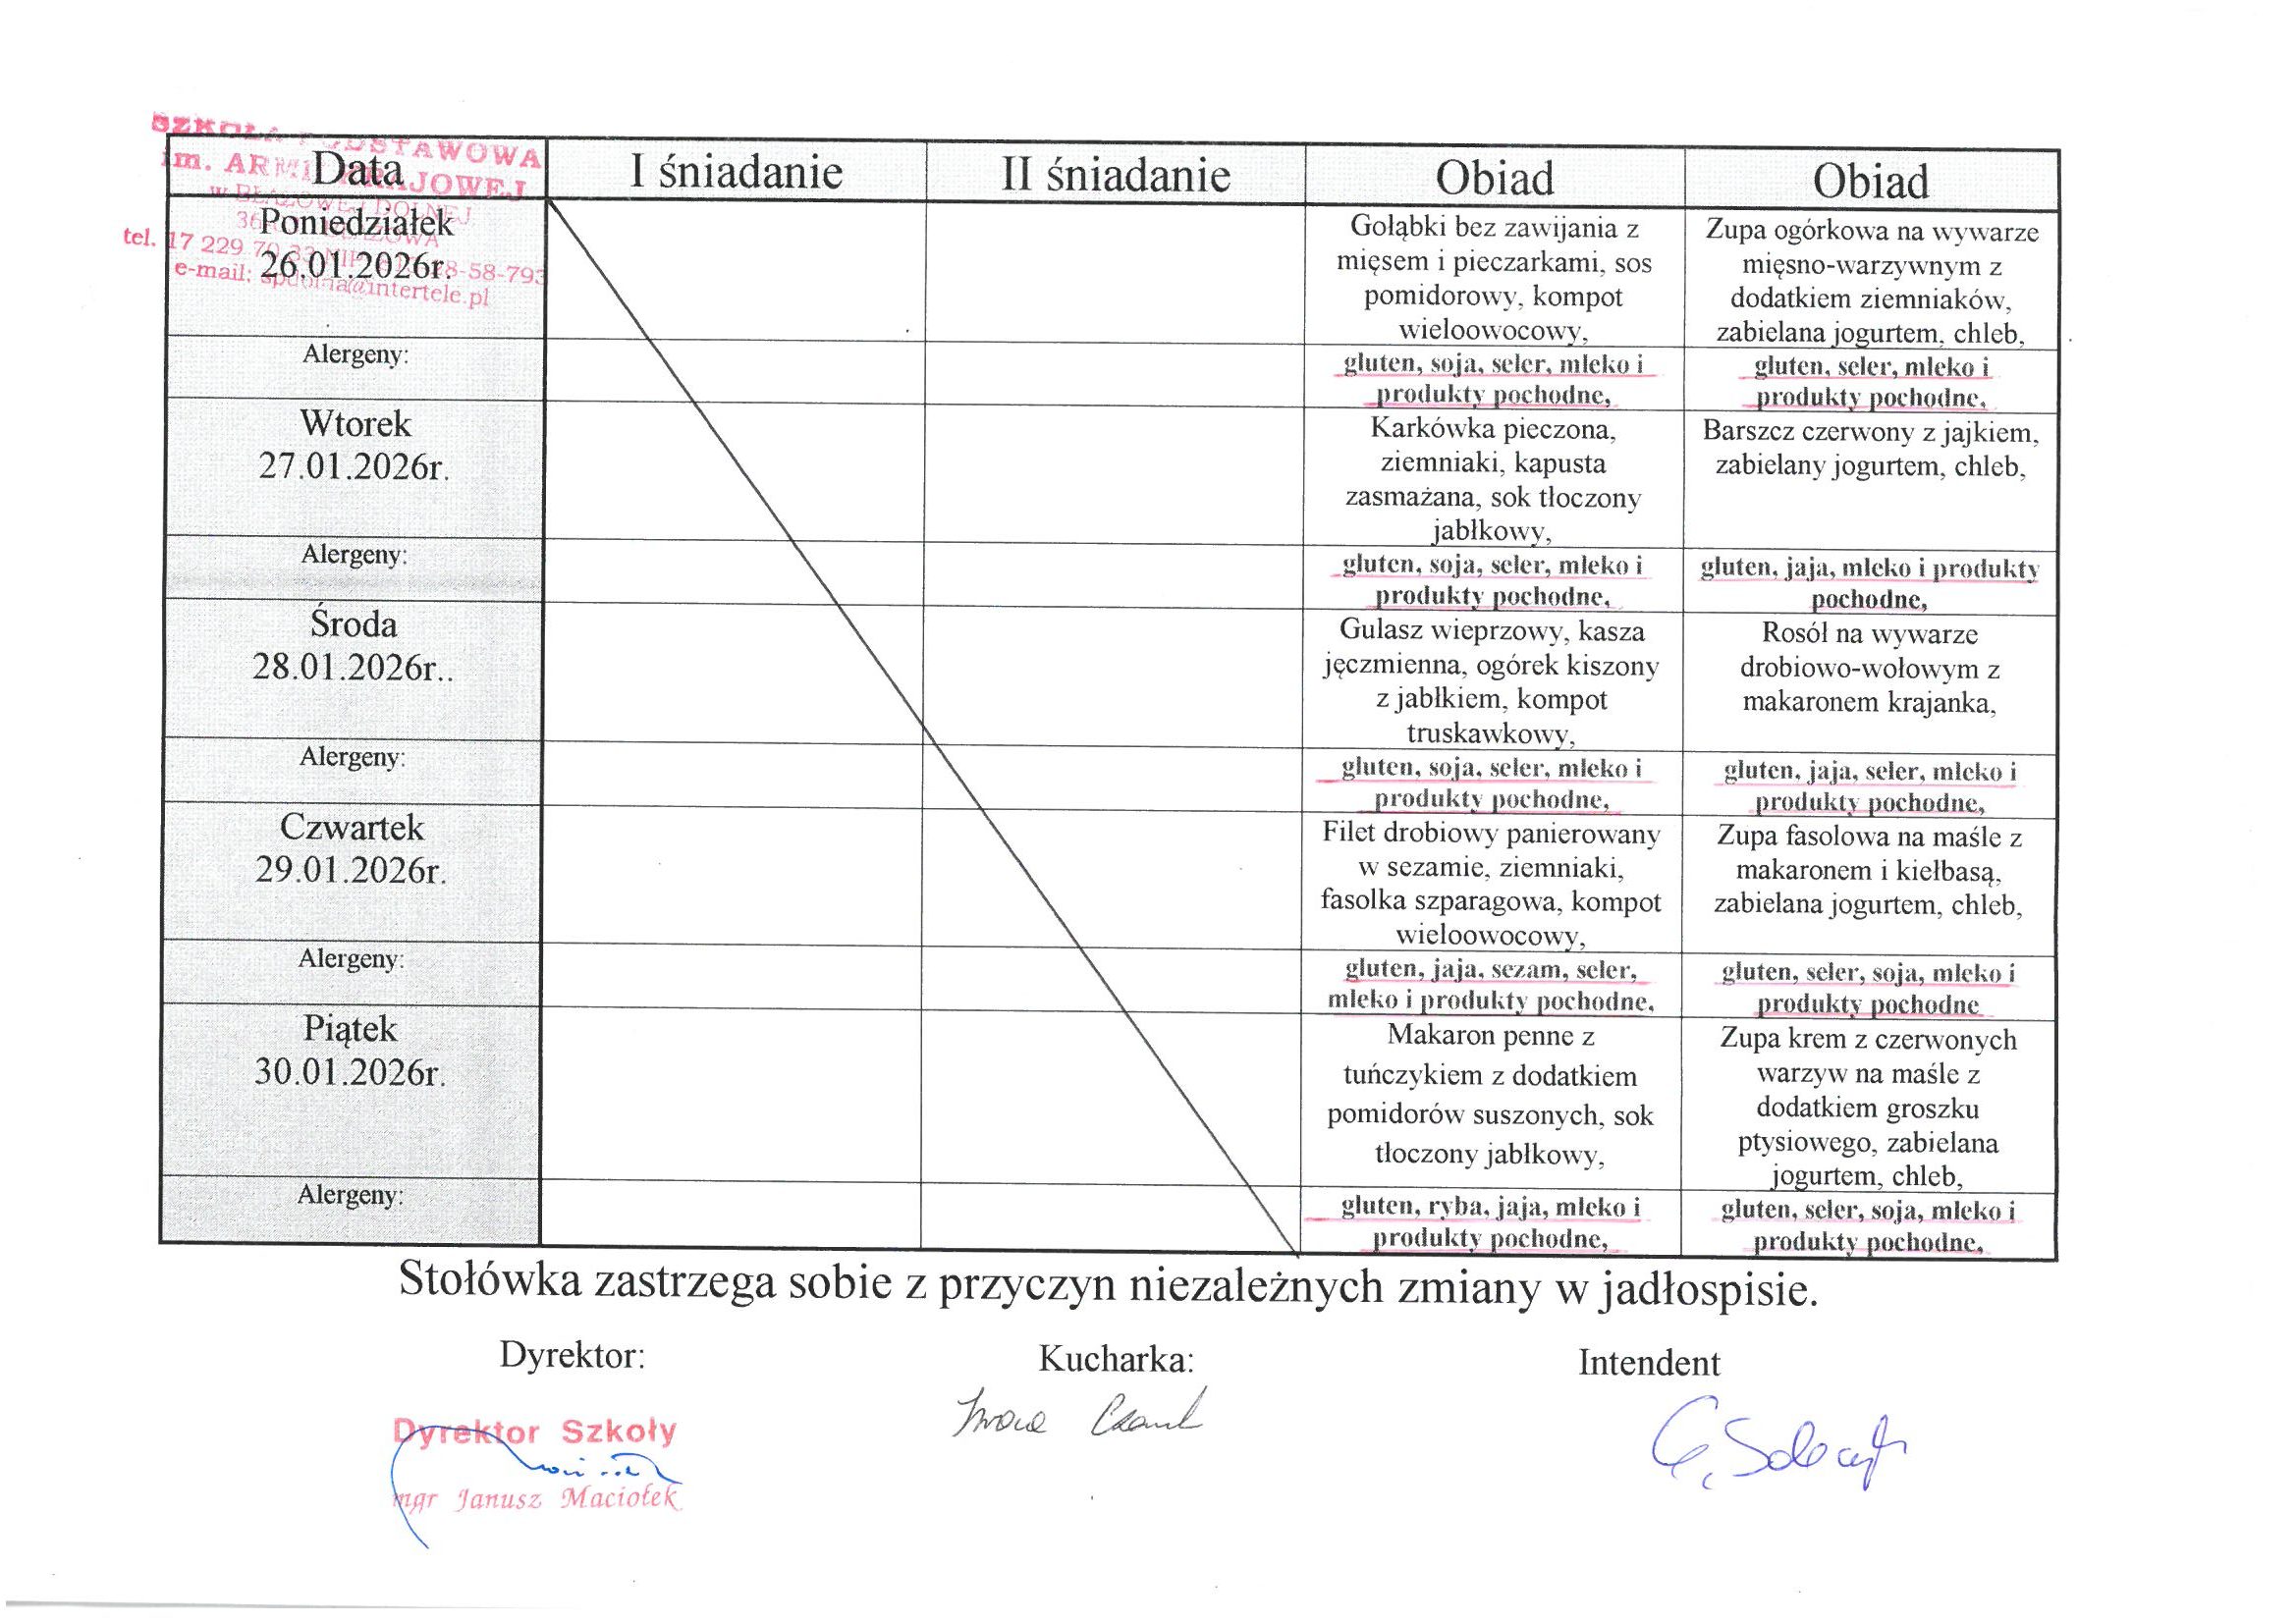 SZKOŁA PODSTAWOWA
im. ARMII KRAJOWEJ
w BŁAŻOWEJ DOLNEJ
tel. 17 229 70 33
e-mail: spdolna@intertele.pl
Data
I śniadanie
II śniadanie
Obiad
Obiad
Poniedziałek
26.01.2026r.
Gołąbki bez zawijania z
mięsem i pieczarkami, sos
pomidorowy, kompot
wieloowocowy,
Zupa ogórkowa na wywarze
mięsno-warzywnym z
dodatkiem ziemniaków,
zabielana jogurtem, chleb,
Alergeny:
gluten, soja, seler, mleko i
produkty pochodne,
gluten, seler, mleko i
produkty pochodne,
Wtorek
27.01.2026r.
Karkówka pieczona,
ziemniaki, kapusta
zasmażana, sok tłoczony
jabłkowy,
Barszcz czerwony z jajkiem,
zabielany jogurtem, chleb,
Alergeny:
gluten, soja, seler, mleko i
produkty pochodne,
gluten, jaja, mleko i produkty
pochodne,
Środa
28.01.2026r..
Gulasz wieprzowy, kasza
jęczmienna, ogórek kiszony
z jabłkiem, kompot
truskawkowy,
Rosół na wywarze
drobiowo-wołowym z
makaronem krajanka,
Alergeny:
gluten, soja, seler, mleko i
produkty pochodne,
gluten, jaja, seler, mleko i
produkty pochodne,
Czwartek
29.01.2026r.
Filet drobiowy panierowany
w sezamie, ziemniaki,
fasolka szparagowa, kompot
wieloowocowy,
Zupa fasolowa na maśle z
makaronem i kiełbasą,
zabielana jogurtem, chleb,
Alergeny:
gluten, jaja, sezam, seler,
mleko i produkty pochodne,
gluten, seler, soja, mleko i
produkty pochodne
Piątek
30.01.2026r.
Makaron penne z
tuńczykiem z dodatkiem
pomidorów suszonych, sok
tłoczony jabłkowy,
Zupa krem z czerwonych
warzyw na maśle z
dodatkiem groszku
ptysiowego, zabielana
jogurtem, chleb,
Alergeny:
gluten, ryba, jaja, mleko i
produkty pochodne,
gluten, seler, soja, mleko i
produkty pochodne,
Stołówka zastrzega sobie z przyczyn niezależnych zmiany w jadłospisie.
Dyrektor:
Kucharka:
Intendent
Dyrektor Szkoły
mgr Janusz Maciołek